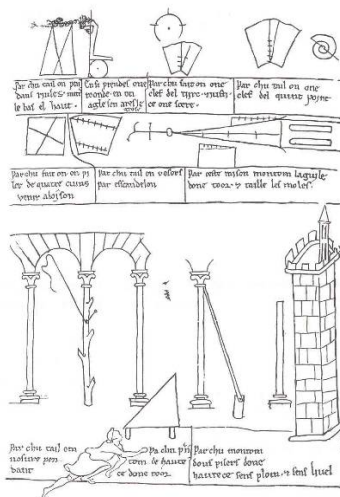 Par chu tail on
le bas el haut.
Ensi prendes one
reonde en un
agle
par chu fait on one
clef del
ce one scere.
Par chu tail on one
clef del quint point
Par chu fait on on pi
ler de quatre cuins
venir aloison
Par chu tail on vosors
par esscandelon
Par ceste raison montom laguile
done toor. z taille les moles.
Par chu tail om
vosure pen
dant
Pa chu
com le haute
ce done toor
Par chu montom
dous pilers done
hautece sens plom. z sens livel